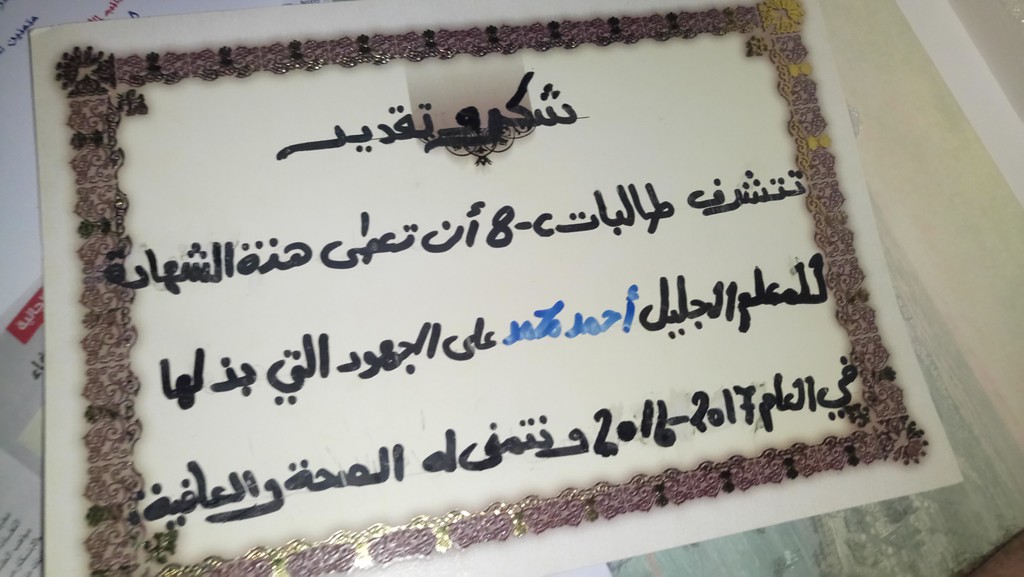 شكر و تقدير
تتشرف طالبات ء-8 أن تعطى هذة الشهادة
للمعلم الجليل أحمد محمد على الجهود التي بذلها
في العام 2017-2016 و نتمنى له الصحة والعافية: